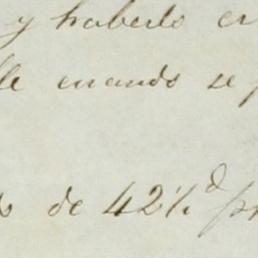 y haberlo en
lle cuando se p
de 42½ p